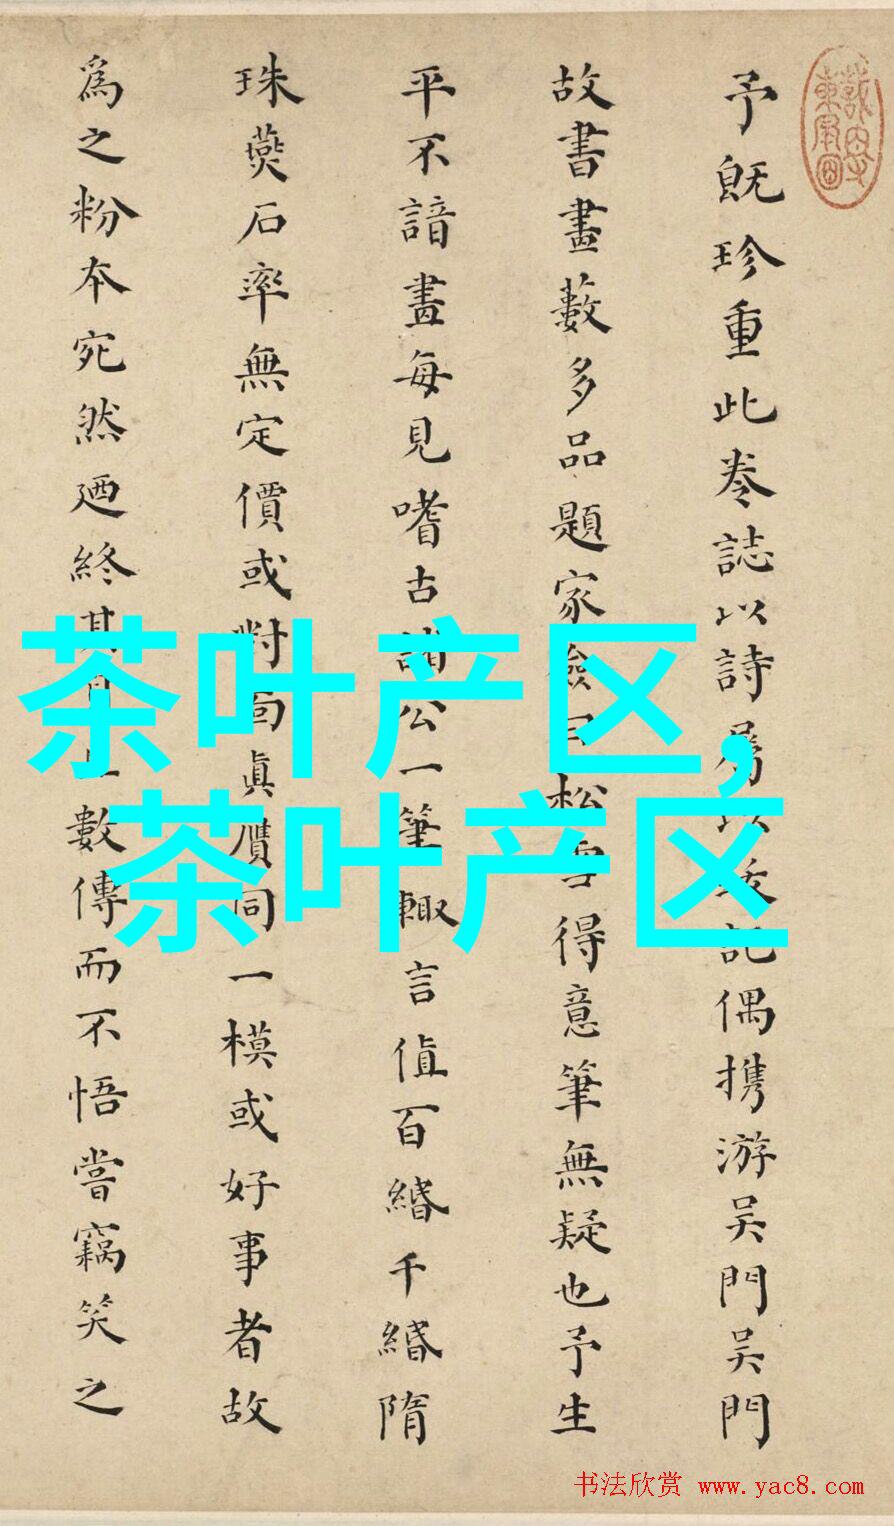 予既珍重此卷誌以詩屬以跋記偶携游吴門吴門
故書畫藪多品題家僉曰松雪得意筆無疑也予生
平不諳畫每見嗜古諸公一筆輙言值百緡千緡隋
珠燕石率無定價或對面眞贋同一模或好事者故
爲之粉本宛然迺終其身 數傳而不悟嘗竊笑之
茶叶产区,
茶叶产区
书法欣赏 www.yac8.com